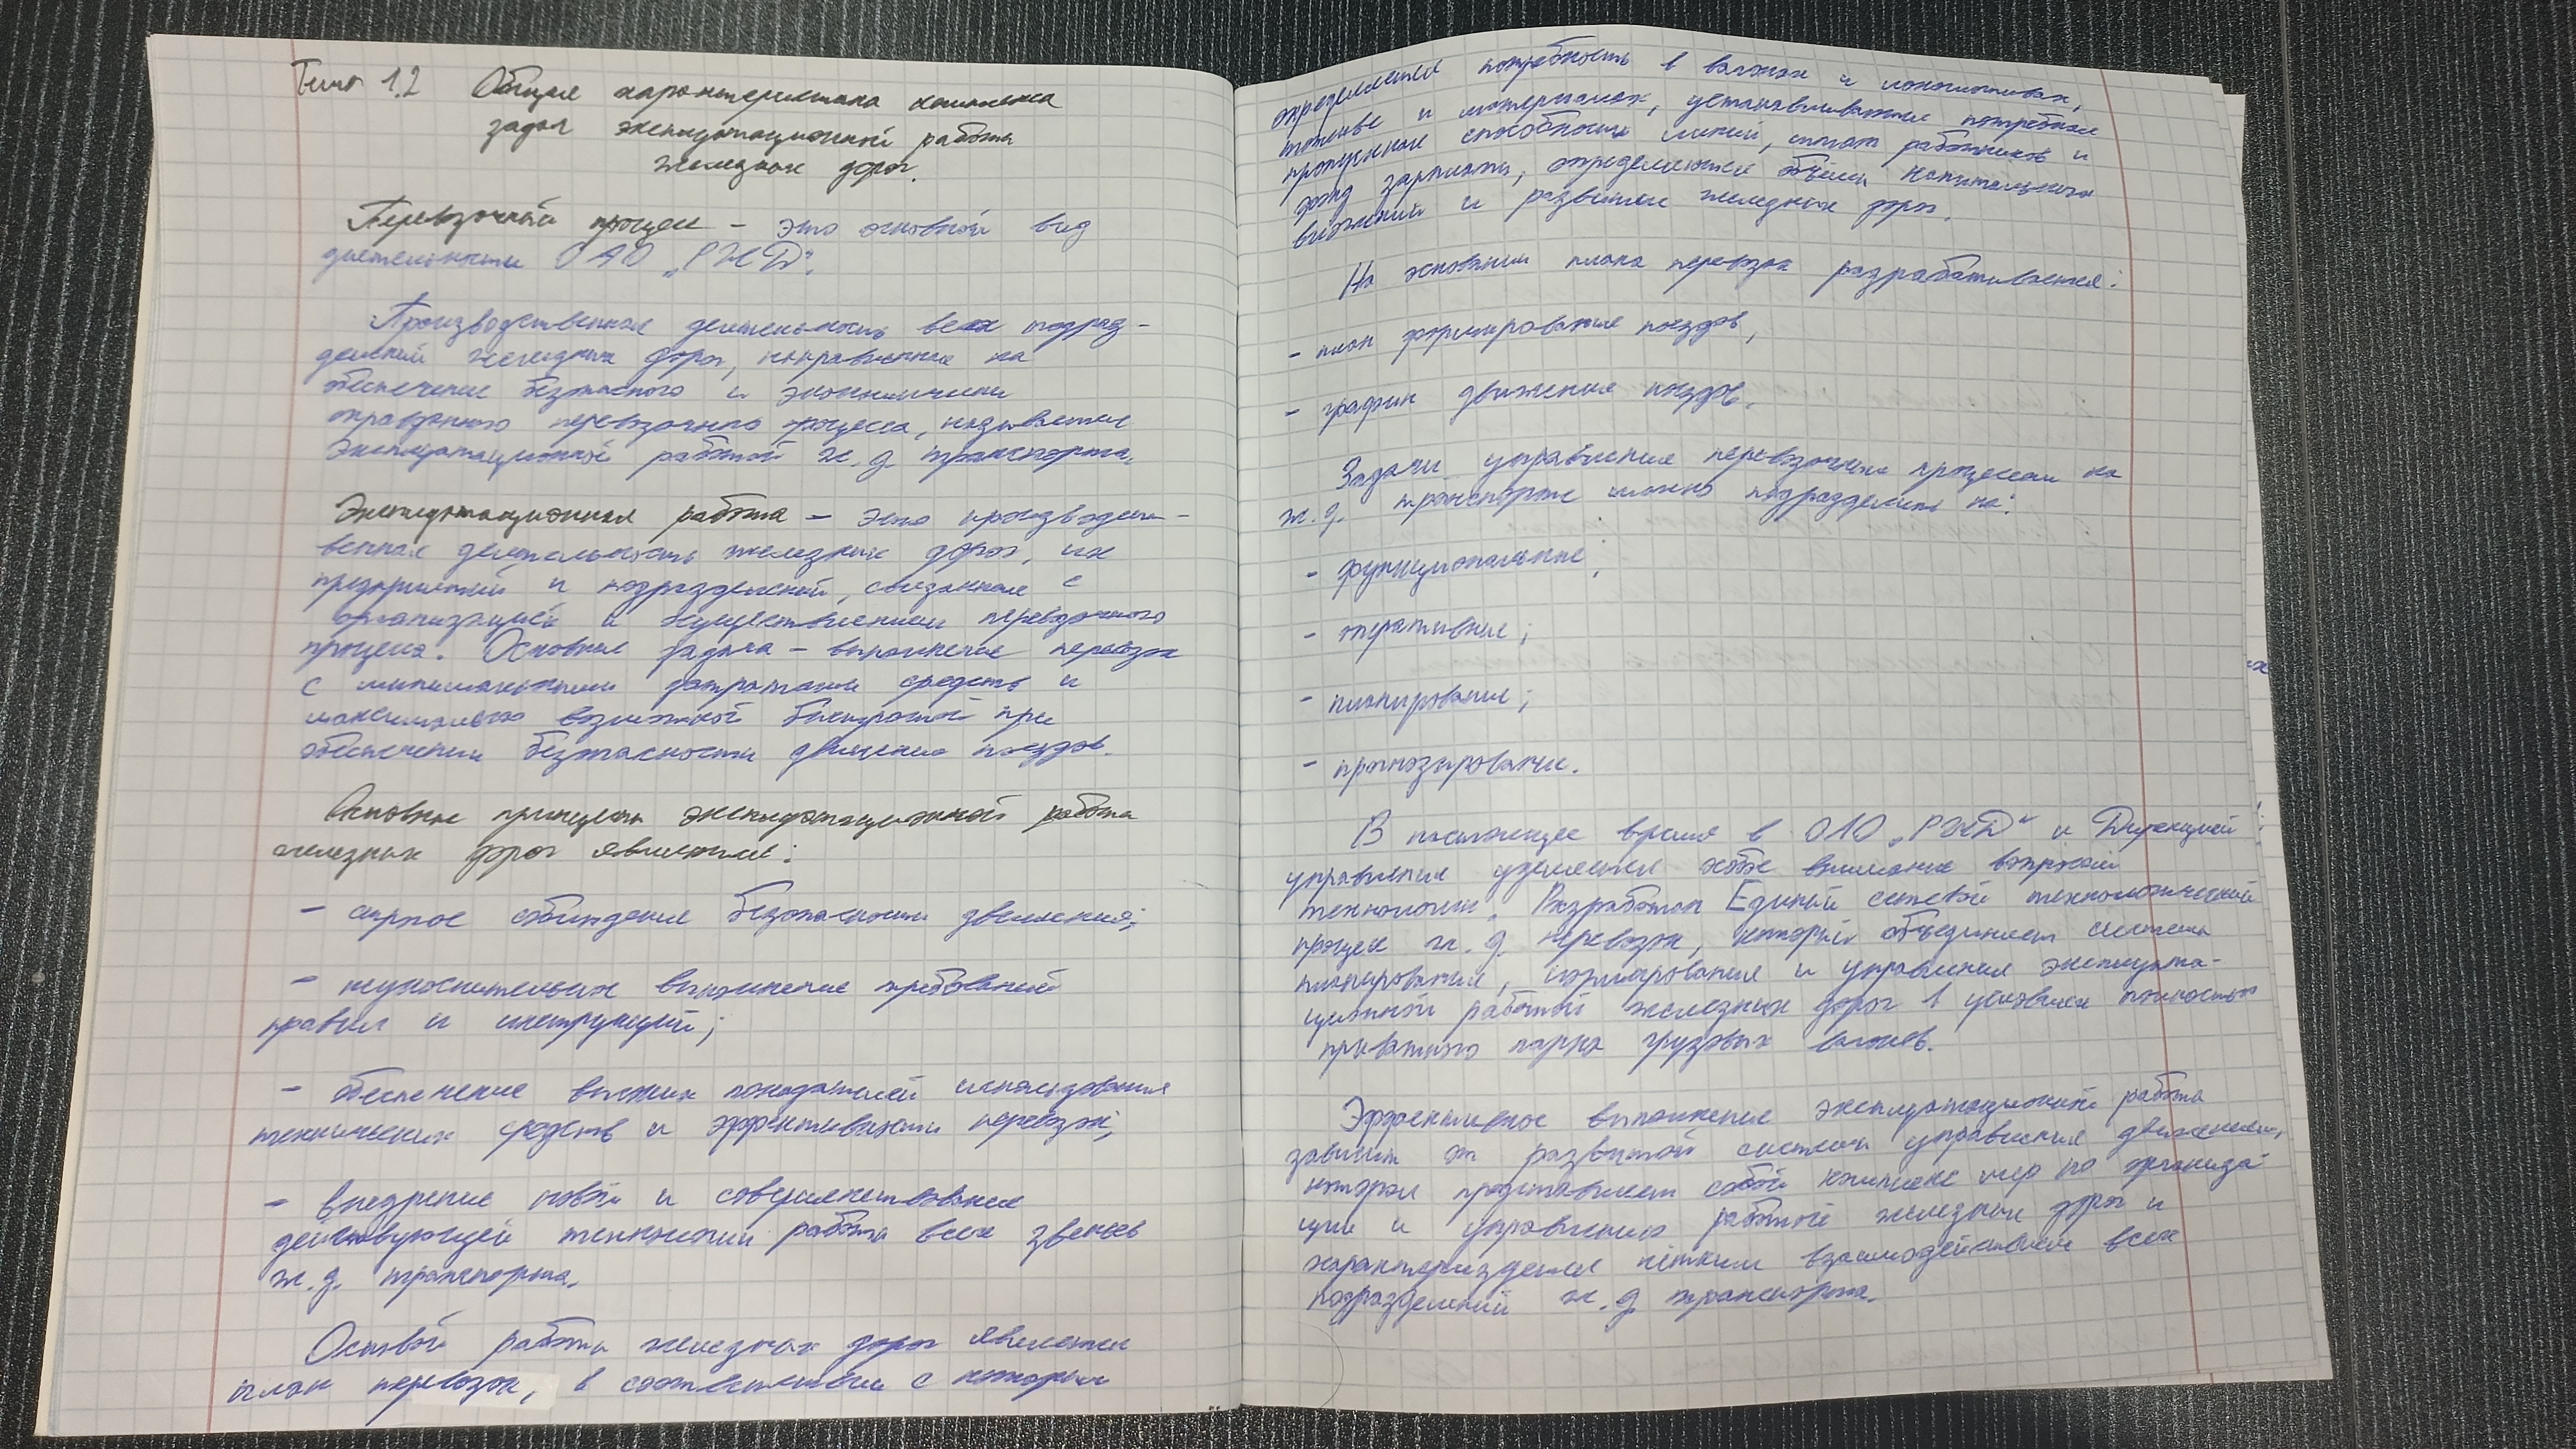 Тема 1.2 Общая характеристика комплекса
задач эксплуатационной работы
железных дорог.
Перевозочный процесс – это основной вид
деятельности ОАО „РЖД".
Производственная деятельность всех подраз-
делений железных дорог, направленная на
обеспечение безопасного и экономически
оправданного перевозочного процесса, называется
Эксплуатационной работой ж.д. транспорта.
Эксплуатационная работа – это производст-
венная деятельность железных дорог, их
предприятий и подразделений, связанная с
организацией и осуществлением перевозочного
процесса. Основная задача – выполнение перевозок
с минимальными затратами средств и
максимально возможной быстротой при
обеспечении безопасности движения поездов.
Основные принципы эксплуатационной работы
железных дорог являются:
- строгое соблюдение безопасности движения;
- неукоснительное выполнение требований
правил и инструкций;
- обеспечение высоких показателей использования
технических средств и эффективности перевозок;
- внедрение новой и совершенствование
действующей технологии работы всех звеньев
ж.д. транспорта.
Основой работы железных дорог является
план перевозок, в соответствии с которым
определяется потребность в вагонах и локомотивах,
топливе и материалах, устанавливается потребная
пропускная способность линий, штат работников и
фонд зарплаты, определяются объёмы капитальных
вложений и развитие железных дорог.
На основании плана перевозок разрабатывается:
- план формирования поездов,
- график движения поездов.
Задачи управления перевозочным процессом на
ж.д. транспорте можно подразделить на:
- функциональные;
- оперативные;
- планирование;
- прогнозирование.
В настоящее время в ОАО „РЖД" и Дирекцией
управления уделяется особое внимание вопросам
технологии. Разработан Единый сетевой технологический
процесс ж.д. перевозок, который объединяет системы
планирования, нормирования и управления эксплуата-
ционной работой железных дорог в условиях полностью
приватного парка грузовых вагонов.
Эффективное выполнение эксплуатационной работы
зависит от развитой системы управления движением,
которая представляет собой комплекс мер по организа-
ции и управлению работой железных дорог и
характеризуется чётким взаимодействием всех
подразделений ж.д. транспорта.